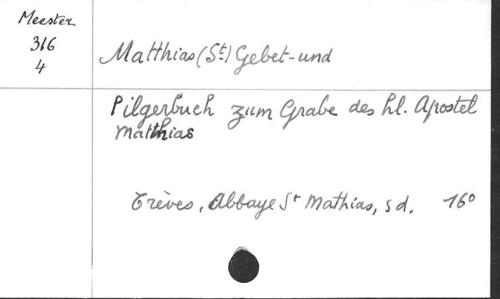 Meester
316
4
Matthias (St) Gebet-und
Pilgerbuch zum Grabe des hl. Apostel
Matthias
Trèves, Abbaye St Mathias, s d. 16°